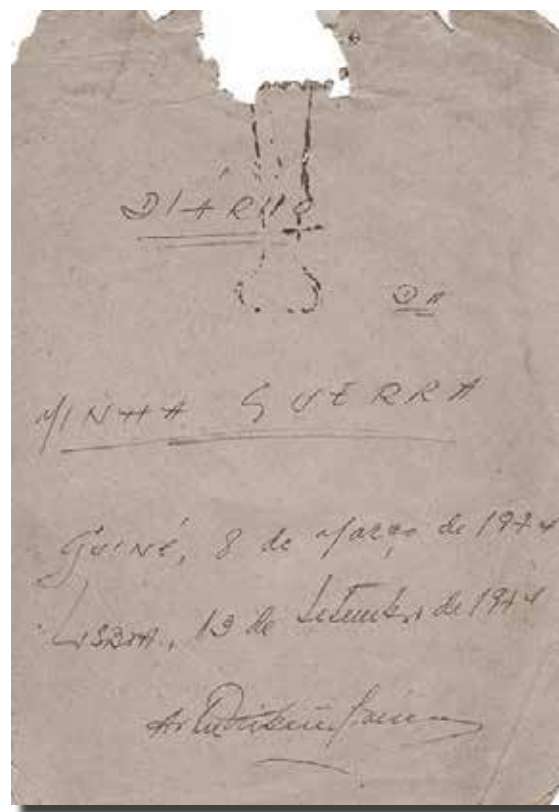 DIÁRIO
DA
MINHA GUERRA
GUINÉ, 8 de Março de 1974
LISBOA, 13 de Setembro de 1974